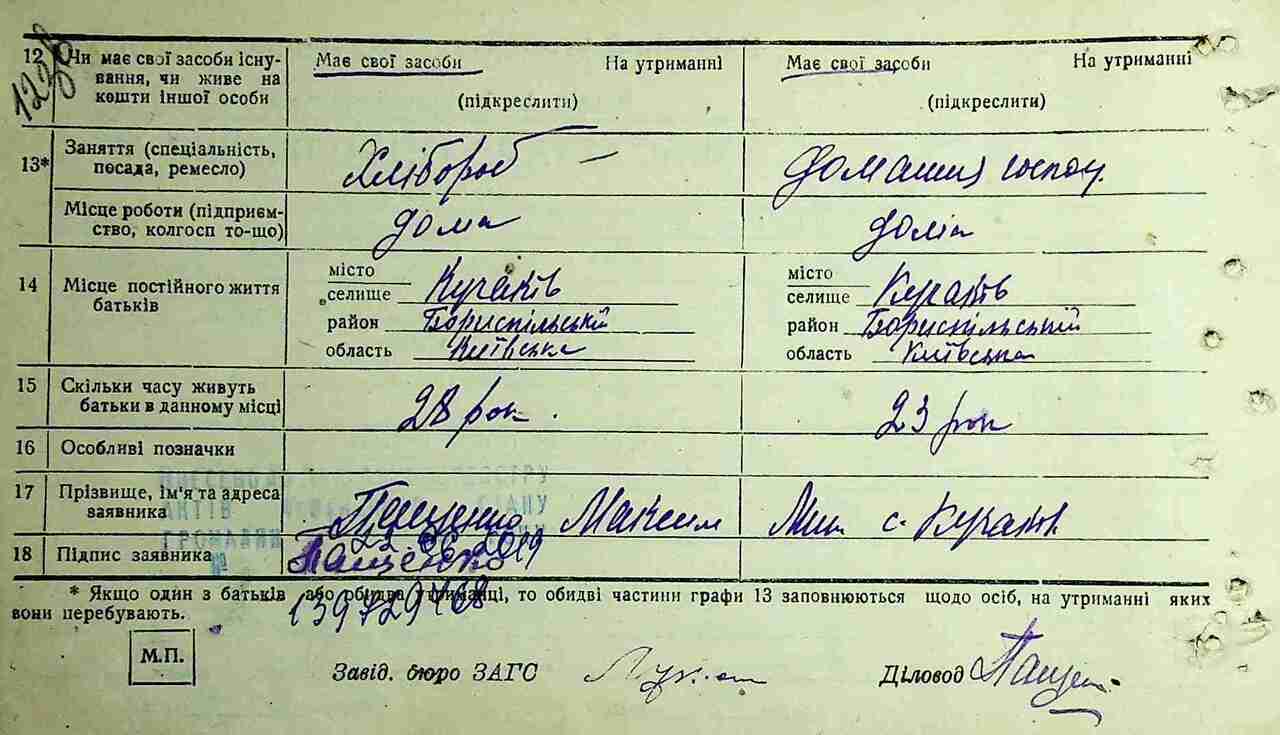 1238
12 Чи має свої засоби існу-вання, чи живе на кошти іншої особи
Має свої засоби На утриманні (підкреслити)
Має свої засоби На утриманні (підкреслити)
13* Заняття (спеціальність, посада, ремесло)
Хлібороб —
домашня господ.
Місце роботи (підприєм-ство, колгосп то-що)
дома
дома
14 Місце постійного життя батьків
місто
селище Кучаків
район Бориспільській
область Київська
місто
селище Кучаків
район Бориспільській
область Київська
15 Скільки часу живуть батьки в данному місці
28 рок.
23 рок
16 Особливі позначки
17 Прізвище, ім'я та адреса заявника
Пащенко Максим Мик с. Кучаків
АКТІВ СТАНУ
ГРОМАДЯН
№
18 Підпис заявника
Пащенко
139729468
* Якщо один з батьків або обидва утриманці, то обидві частини графи 13 заповнюються щодо осіб, на утриманні яких
вони перебувають.
М.П.
Завід. бюро ЗАГС
Діловод Пащен